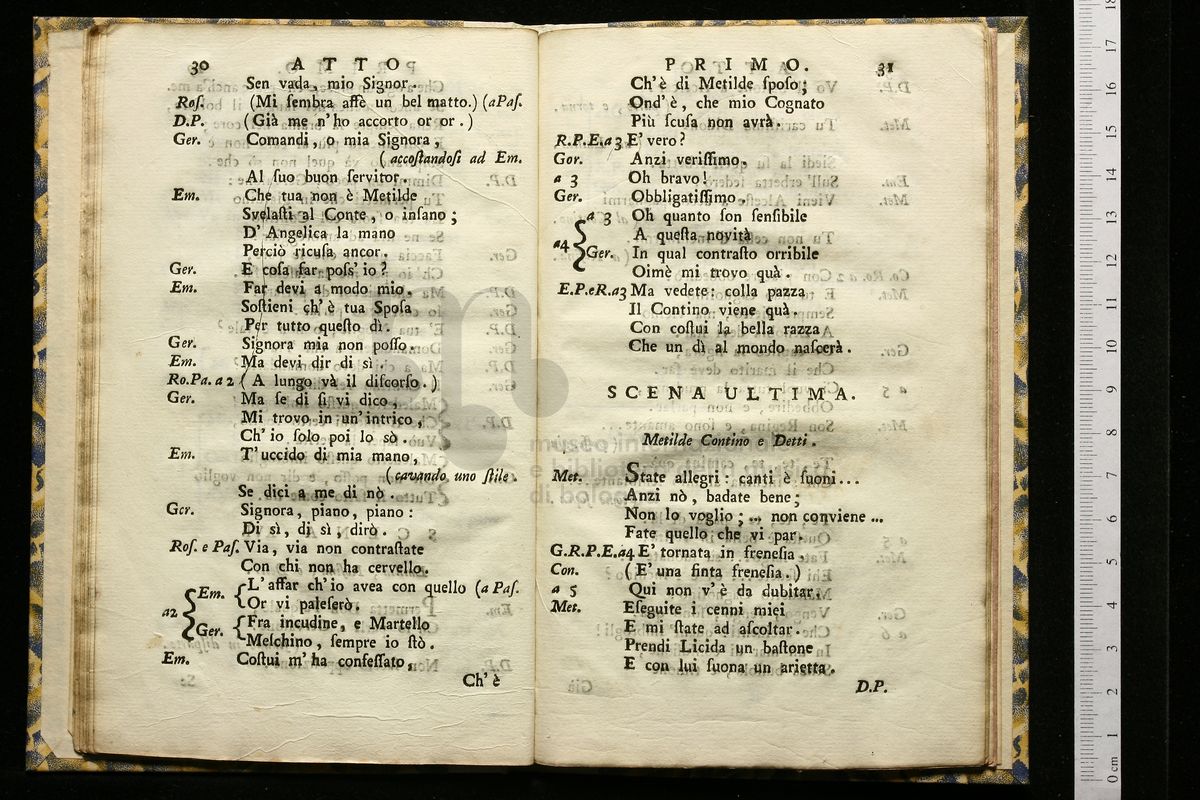 30 ATTO
Sen vada, mio Signor.
Roſ. (Mi ſembra affè un bel matto.) (a Paſ.
D.P. (Già me n'ho accorto or or.)
Ger. Comandi, o mia Signora,
(accoſtandoſi ad Em.
Al ſuo buon ſervitor.
Em. Che tua non è Metilde
Svelaſti al Conte, o inſano;
D'Angelica la mano
Perciò ricuſa ancor.
Ger. E coſa far poſſ'io?
Em. Far devi a modo mio.
Soſtieni ch'è tua Spoſa
Per tutto queſto dì.
Ger. Signora mia non poſſo.
Em. Ma devi dir di sì.
Ro.Pa. a 2 (A lungo và il diſcorſo.)
Ger. Ma ſe di ſi vi dico,
Mi trovo in un'intrico,
Ch'io ſolo poi lo sò.
Em. T'uccido di mia mano,
(cavando uno ſtile.
Se dici a me di nò.
Ger. Signora, piano, piano:
Di sì, di sì, dirò.
Roſ. e Paſ. Via, via non contraſtate
Con chi non ha cervello.
a2 Em. L'affar ch'io avea con quello (a Paſ.
Or vi paleſerò.
Ger. Fra incudine, e Martello
Meſchino, ſempre io ſtò.
Em. Coſtui m'ha confeſſato,
Ch'è
PRIMO. 31
Ch'è di Metilde ſpoſo;
Ond'è, che mio Cognato
Più ſcuſa non avrà.
R.P.E.a 3 E' vero?
Gor. Anzi veriſſimo.
a 3 Oh bravo!
Ger. Obbligatiſſimo.
a4 a 3 Oh quanto ſon ſenſibile
A queſta novità
Ger. In qual contraſto orribile
Oimè mi trovo quà.
E.P.eR.a3 Ma vedete: colla pazza
Il Contino viene quà.
Con coſtui la bella razza
Che un dì al mondo naſcerà.
SCENA ULTIMA.
Metilde Contino e Detti.
Met. State allegri: canti è ſuoni...
Anzi nò, badate bene;
Non lo voglio; ... non conviene ...
Fate quello che vi par.
G.R.P.E.a4 E' tornata in freneſia.
Con. (E' una finta freneſia.)
a 5 Qui non v'è da dubitar.
Met. Eſeguite i cenni miei
E mi ſtate ad aſcoltar.
Prendi Licida un baſtone
E con lui ſuona un arietta.
D.P.